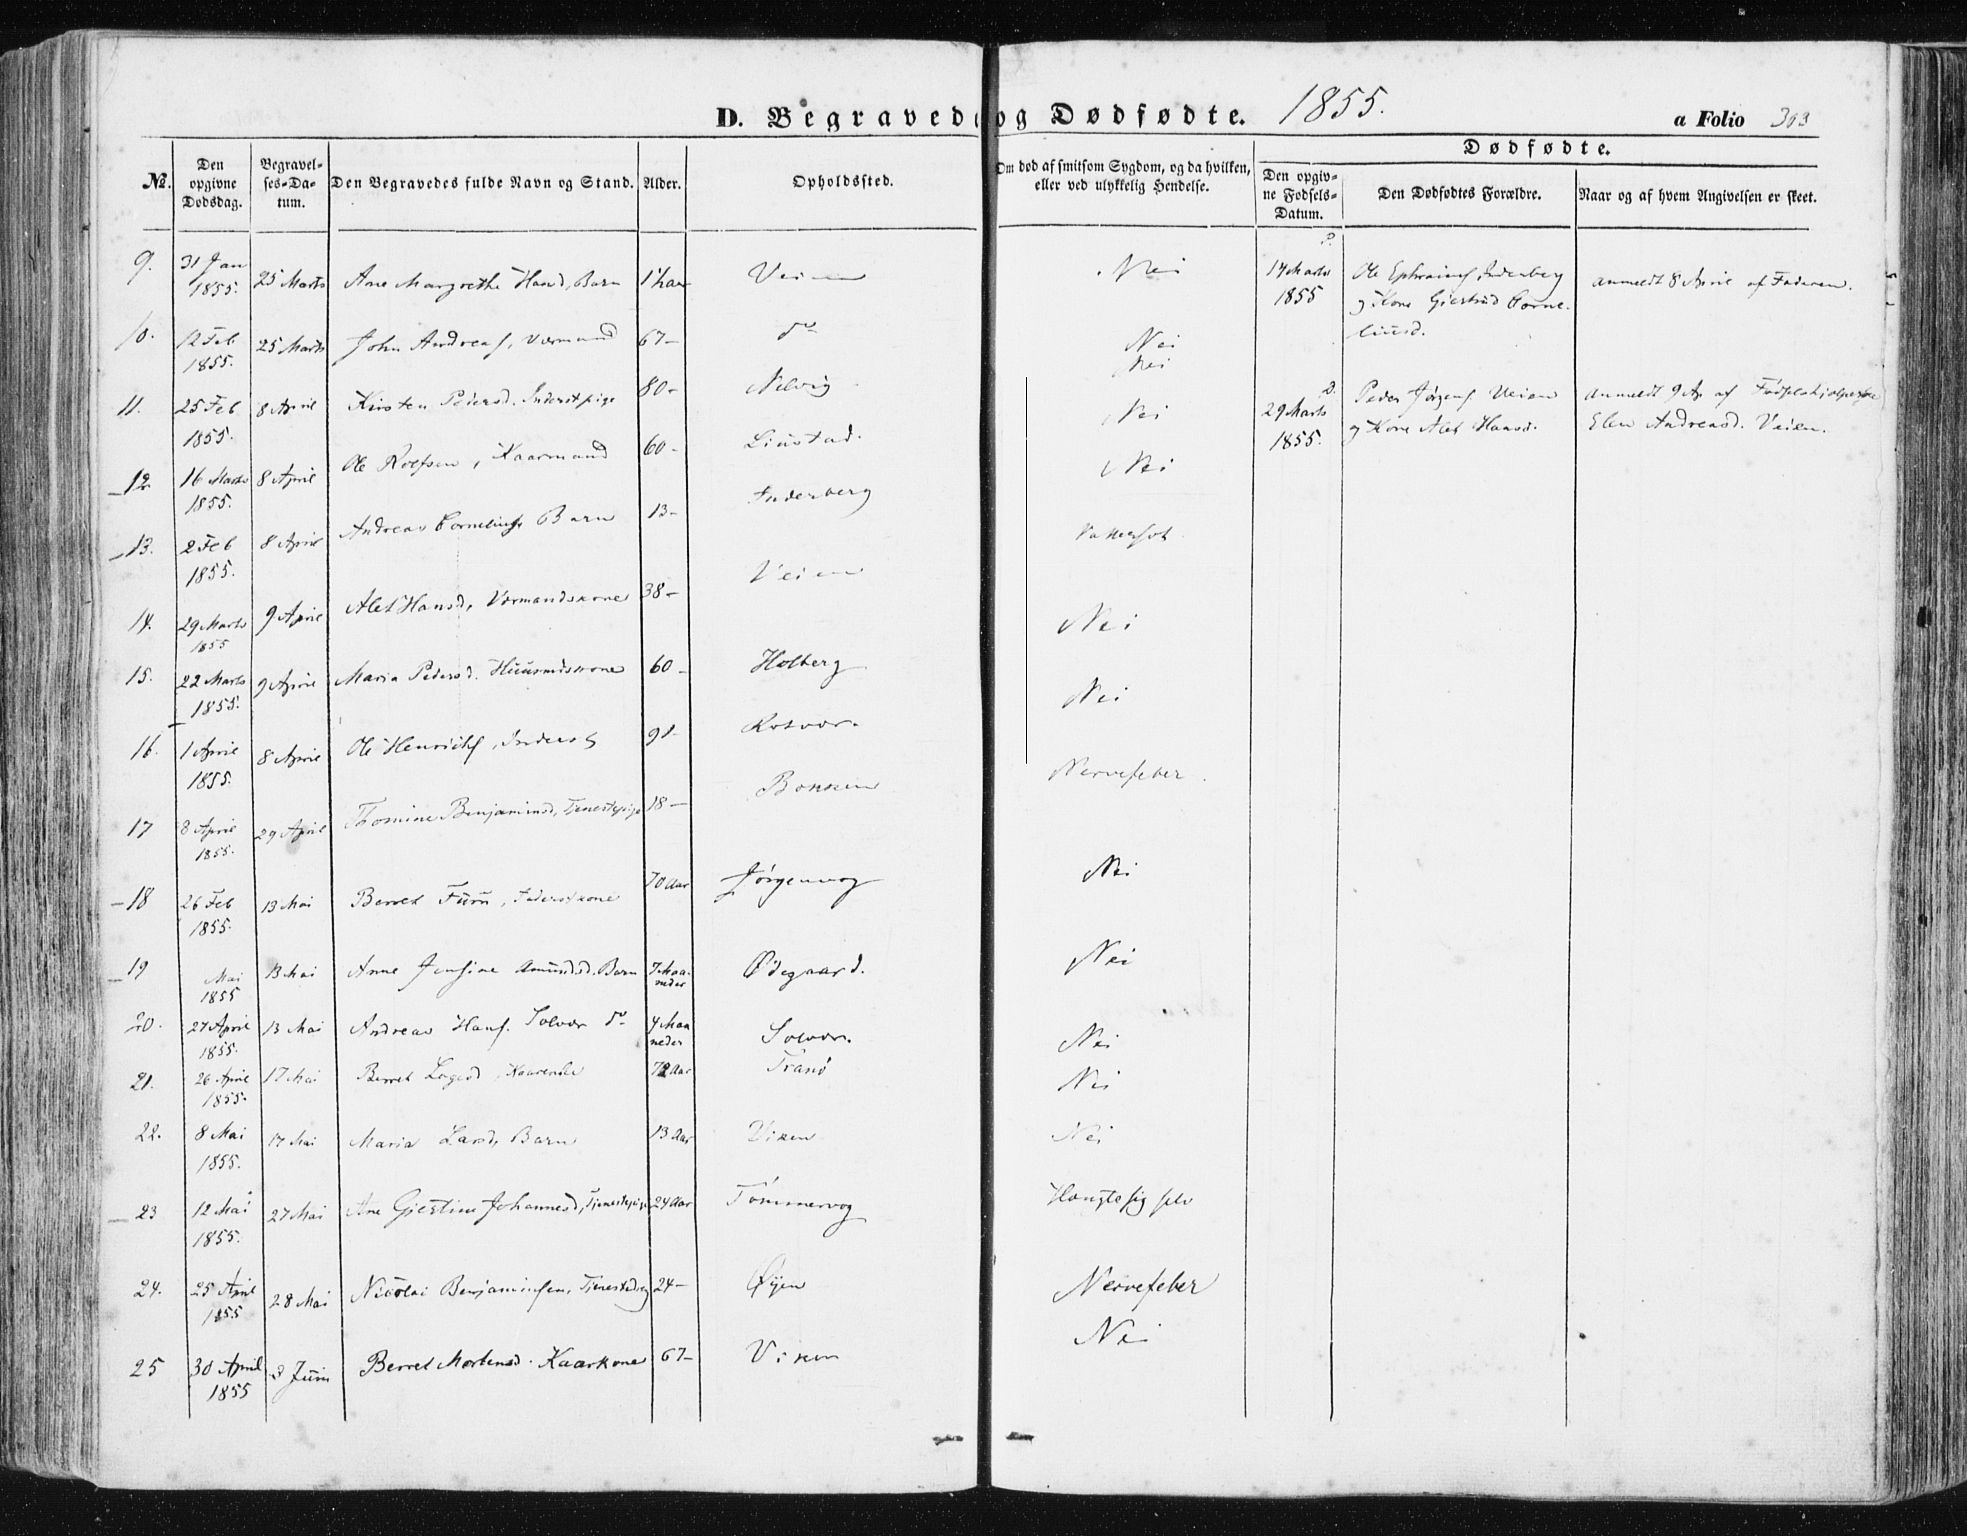 D. Begravede og Dødfødte. 1855. a Folio 303
Dødfødte.
№. Den opgivne Dødsdag. Begravelses-Datum. Den Begravedes fulde Navn og Stand. Alder. Opholdssted. Om død af smitsom Sygdom, og da hvilken, eller ved ulykkelig Hendelse. Den opgivne Fødsels-Datum. Den Dødfødtes Forældre. Naar og af hvem Angivelsen er skeet.
9. 31 Jan 1855. 25 Marts Ane Margrethe Barn 1 Veien Nei
14 Marts 1855 Ole Ephraims Inderberg og Kone Giertrud Corneliusd. anmeldt 8 April af Faderen.
10. 12 Feb 1855. 25 Marts John Andreas, 67- do Nei
11. 25 Feb 1855. 8 April Kirsten Pedersd. Inderstpige 80- Nelvig Nei
29 Marts 1855. Peder Jørgens Veien og Kone Alet Hansd. anmeldt 9 Ap af Elen Andreasd. Veien.
12 16 Marts 1855. 8 April Ole Rolfsen, Kaarmand 60- Liustad. Nei
Nei
13. 2 Feb 1855. 8 April Andreas Cornelius Barn 13- Inderberg Vattersot
14. 29 Marts 1855 9 April Alet Hansd, 38- Veien Nei
15. 22 Marts 1855. 9 April Maria Pedersd. Huusmdskone 60- Holberg Nei
16. 1 April 1855. 8 April Ole Henrichs, Inderst 91- Rosvor.
17 8 April 1855. 29 April Thomine Benjaminsd, Tjenestepige 18- Bokken Nervefeber.
18 26 Feb 1855. 13 Mai Berret Furu, Inderstkone 70 Aar Jørgenvog Nei
19 Mai 1855 13 Mai Anne Jensine Amundsd. Barn 7 Maaneder Ødegaard. Nei
20. 27 April 1855. 13 Mai Andreas Hans. Solvor do 4 Maaneder Solvor. Nei
21. 26 April 1855. 17 Mai Berret Kaarenke 72 Aar Tranø Nei
22. 8 Mai 1855. 17 Mai Maria Larsd, Barn 13 Aar Viken Nei
23 12 Mai 1855. 27 Mai Ane Giertine Johannesd, Tjenestepige 24 Aar Tømmervog Hængte sig selv
24. 25 April 1855 28 Mai Nicolai Benjaminsen, Tjenestedreng 24- Øyen Nervefeber
25 30 April 1855 2 Juni Berret Mortensd. Kaarkone 67- Viken Nei